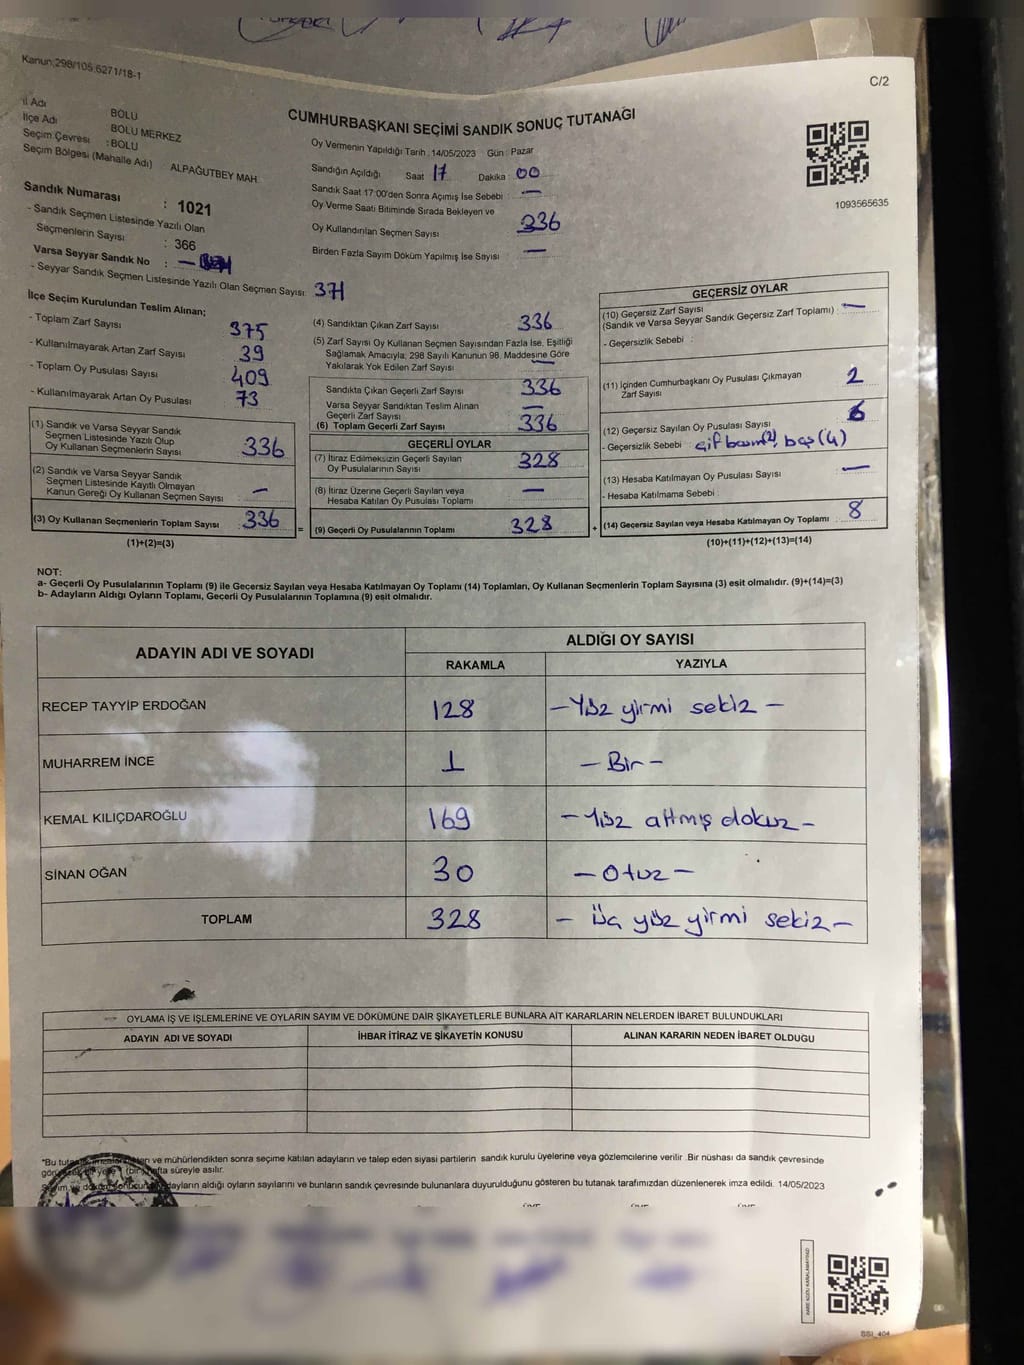 Kanun:298/105.6271/18-1
C/2
İl Adı BOLU
İlçe Adı BOLU MERKEZ
Seçim Çevresi : BOLU
Seçim Bölgesi (Mahalle Adı) ALPAĞUTBEY MAH.
CUMHURBAŞKANI SEÇİMİ SANDIK SONUÇ TUTANAĞI
Oy Vermenin Yapıldığı Tarih : 14/05/2023 Gün : Pazar
Sandığın Açıldığı Saat 17 Dakika : 00
Sandık Saat 17:00'den Sonra Açımış İse Sebebi : —
Oy Verme Saati Bitiminde Sırada Bekleyen ve
Oy Kullandırılan Seçmen Sayısı 336
Birden Fazla Sayım Döküm Yapılmış İse Sayısı —
1093565635
Sandık Numarası : 1021
- Sandık Seçmen Listesinde Yazılı Olan
Seçmenlerin Sayısı : 366
Varsa Seyyar Sandık No : —
- Seyyar Sandık Seçmen Listesinde Yazılı Olan Seçmen Sayısı: 371
İlçe Seçim Kurulundan Teslim Alınan;
- Toplam Zarf Sayısı 375
- Kullanılmayarak Artan Zarf Sayısı 39
- Toplam Oy Pusulası Sayısı 409
- Kullanılmayarak Artan Oy Pusulası 73
(1) Sandık ve Varsa Seyyar Sandık
Seçmen Listesinde Yazılı Olup
Oy Kullanan Seçmenlerin Sayısı 336
(2) Sandık ve Varsa Seyyar Sandık
Seçmen Listesinde Kayıtlı Olmayan
Kanun Gereği Oy Kullanan Seçmen Sayısı —
(3) Oy Kullanan Seçmenlerin Toplam Sayısı 336
(1)+(2)=(3)
=
(4) Sandıktan Çıkan Zarf Sayısı 336
(5) Zarf Sayısı Oy Kullanan Seçmen Sayısından Fazla İse, Eşitliği
Sağlamak Amacıyla; 298 Sayılı Kanunun 98. Maddesine Göre
Yakılarak Yok Edilen Zarf Sayısı —
Sandıkta Çıkan Geçerli Zarf Sayısı 336
Varsa Seyyar Sandıktan Teslim Alınan
Geçerli Zarf Sayısı —
(6) Toplam Geçerli Zarf Sayısı 336
GEÇERLİ OYLAR
(7) İtiraz Edilmeksizin Geçerli Sayılan
Oy Pusulalarının Sayısı 328
(8) İtiraz Üzerine Geçerli Sayılan veya
Hesaba Katılan Oy Pusulası Toplamı —
(9) Geçerli Oy Pusulalarının Toplamı 328
+
GEÇERSİZ OYLAR
(10) Geçersiz Zarf Sayısı
(Sandık ve Varsa Seyyar Sandık Geçersiz Zarf Toplamı) : —
- Geçersizlik Sebebi :
(11) İçinden Cumhurbaşkanı Oy Pusulası Çıkmayan
Zarf Sayısı 2
(12) Geçersiz Sayılan Oy Pusulası Sayısı 6
- Geçersizlik Sebebi : çift basım(2), boş (4)
(13) Hesaba Katılmayan Oy Pusulası Sayısı —
- Hesaba Katılmama Sebebi :
(14) Geçersiz Sayılan veya Hesaba Katılmayan Oy Toplamı 8
(10)+(11)+(12)+(13)=(14)
NOT:
a- Geçerli Oy Pusulalarının Toplamı (9) ile Geçersiz Sayılan veya Hesaba Katılmayan Oy Toplamı (14) Toplamları, Oy Kullanan Seçmenlerin Toplam Sayısına (3) eşit olmalıdır. (9)+(14)=(3)
b- Adayların Aldığı Oyların Toplamı, Geçerli Oy Pusulalarının Toplamına (9) eşit olmalıdır.
ADAYIN ADI VE SOYADI
ALDIĞI OY SAYISI
RAKAMLA YAZIYLA
RECEP TAYYİP ERDOĞAN 128 —Yüz yirmi sekiz —
MUHARREM İNCE 1 — Bir —
KEMAL KILIÇDAROĞLU 169 — Yüz altmış dokuz —
SİNAN OĞAN 30 — Otuz —
TOPLAM 328 — Üç yüz yirmi sekiz —
OYLAMA İŞ VE İŞLEMLERİNE VE OYLARIN SAYIM VE DÖKÜMÜNE DAİR ŞİKAYETLERLE BUNLARA AİT KARARLARIN NELERDEN İBARET BULUNDUKLARI
ADAYIN ADI VE SOYADI İHBAR İTİRAZ VE ŞİKAYETİN KONUSU ALINAN KARARIN NEDEN İBARET OLDUĞU
*Bu ve mühürlendikten sonra seçime katılan adayların ve talep eden siyasi partilerin sandık kurulu üyelerine veya gözlemcilerine verilir. Bir nüshası da sandık çevresinde
(bir) hafta süreyle asılır.
adayların aldığı oyların sayılarını ve bunların sandık çevresinde bulunanlara duyurulduğunu gösteren bu tutanak tarafımızdan düzenlenerek imza edildi. 14/05/2023
KARE KODU KARALAMAYINIZ!
SSI_404